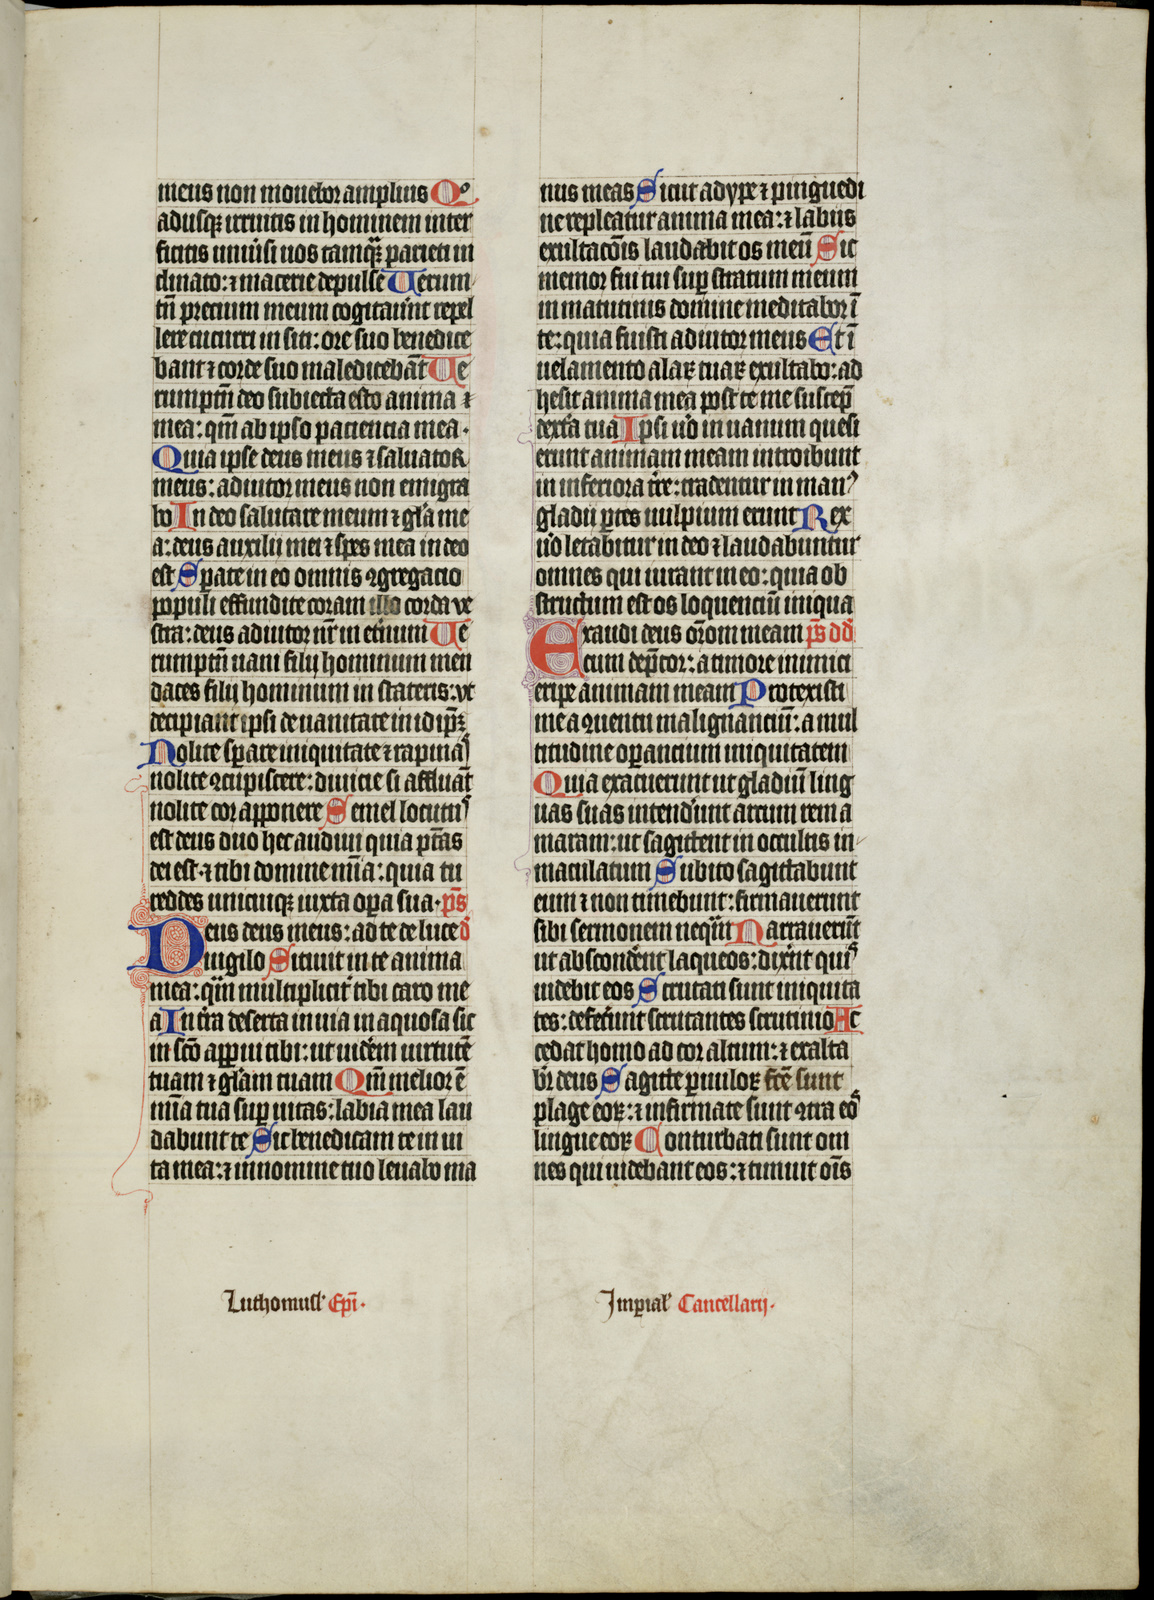 meus non mouebor amplius Qo
adusqꝫ irruitis in hominem inter
ficitis uniu̅si uos tamqꝫ parieti in
clinato: ⁊ macerie depulse Uerum
tn̅ precium meum cogitau̅nt repel
lere cucurri in siti: ore suo benedice
bant ⁊ corde suo maledicebāt Ue
rumptn̅ deo subiecta esto anima
mea: qm̅ ab ipso paciencia mea·
Quia ipse deus meus ⁊ saluator
meus: adiutor meus non emigra
bo In deo salutare meum ⁊ gl̅a me
a: deus auxilij mei ⁊ spes mea in deo
est Sꝑate in eo omnis ꝯgregacio
populi effundite coram illo corda ve
stra: deus adiutor nr̅ in et̅num Ue
rumptn̅ uani filij hominum men
daces filij hominum in stateris: vt
decipiant ipsi de uanitate in idip̅ꝫ
Nolite sꝑare iniquitate ⁊ rapinaꝰ
nolite ꝯcupiscere: diuicie si affluāt
nolite cor apponere Semel locutuꝰ
est deus duo hec audiui quia pt̅as
dei est·⁊ tibi domine mīa: quia tu
reddes unicuiqꝫ iuxta oꝑa sua· ps̅
Deus deus meus: ad te de luce d̅
uigilo Sitiuit in te anima
mea: qm̅ multiplicit̅ tibi caro me
a In t̅ra deserta inuia inaquosa sic
in sc̅o apparui tibi: ut uide̅m uirtute̅
tuam ⁊ gl̅am tuam Qm̅ melior ē
mīa tua suꝑ uitas: labia mea lau
dabunt te Sic benedicam te in ui
ta mea: ⁊ in nomine tuo leuabo ma
nus meas Sicut adype ⁊ pinguedi
ne repleatur anima mea: ⁊ labiis
exultaco̅is laudabit os meū Sic
memor fui tui suꝑ stratum meum
in matutinis domine meditabor ī
te: quia fuisti adiutor meus Et ī
uelamento alaꝝ tuaꝝ exultabo: ad
hesit anima mea post te me suscep̅
dext̅a tua Ipsi u̅o in uanum quesi
erunt animam meam introibunt
in inferiora t̅re: tradentur in manꝰ
gladij ꝑtes uulpium erunt Rex
u̅o letabitur in deo ⁊ laudabuntur
omnes qui iurant in eo: quia ob
structum est os loquenciū iniqua
Exaudi deus or̅om meam ps̅ dd̅
cum dep̅cor: a timore inimici
eripe animam meam Protexisti
me a ꝯuentu malignanciū: a mul
titudine oꝑancium iniquitatem
Quia exacuerunt ut gladiū ling
uas suas intend̅unt arcum rem a
maram: ut sagittent in occultis in
maculatum Subito sagittabunt
eum ⁊ non timebunt: firmauerunt
sibi sermonem neq̅m Narrauerūt
ut absconde̅nt laqueos: dix̅nt quiꝰ
uidebit eos Scrutati sunt iniquita
tes: defec̅unt scrutantes scrutinio Ac
cedat homo ad cor altum: ⁊ exalta
bi̅ deus Sagitte ꝑuuloꝝ fc̅e sunt
plage eoꝝ: ⁊ infirmate sunt ꝯtra eoꝰ
lingue eoꝝ Conturbati sunt om
nes qui uidebant eos: ⁊ timuit oi̅s
Luthomusl̕ Ep̅i·
Imꝑial̕ Cancellarij·